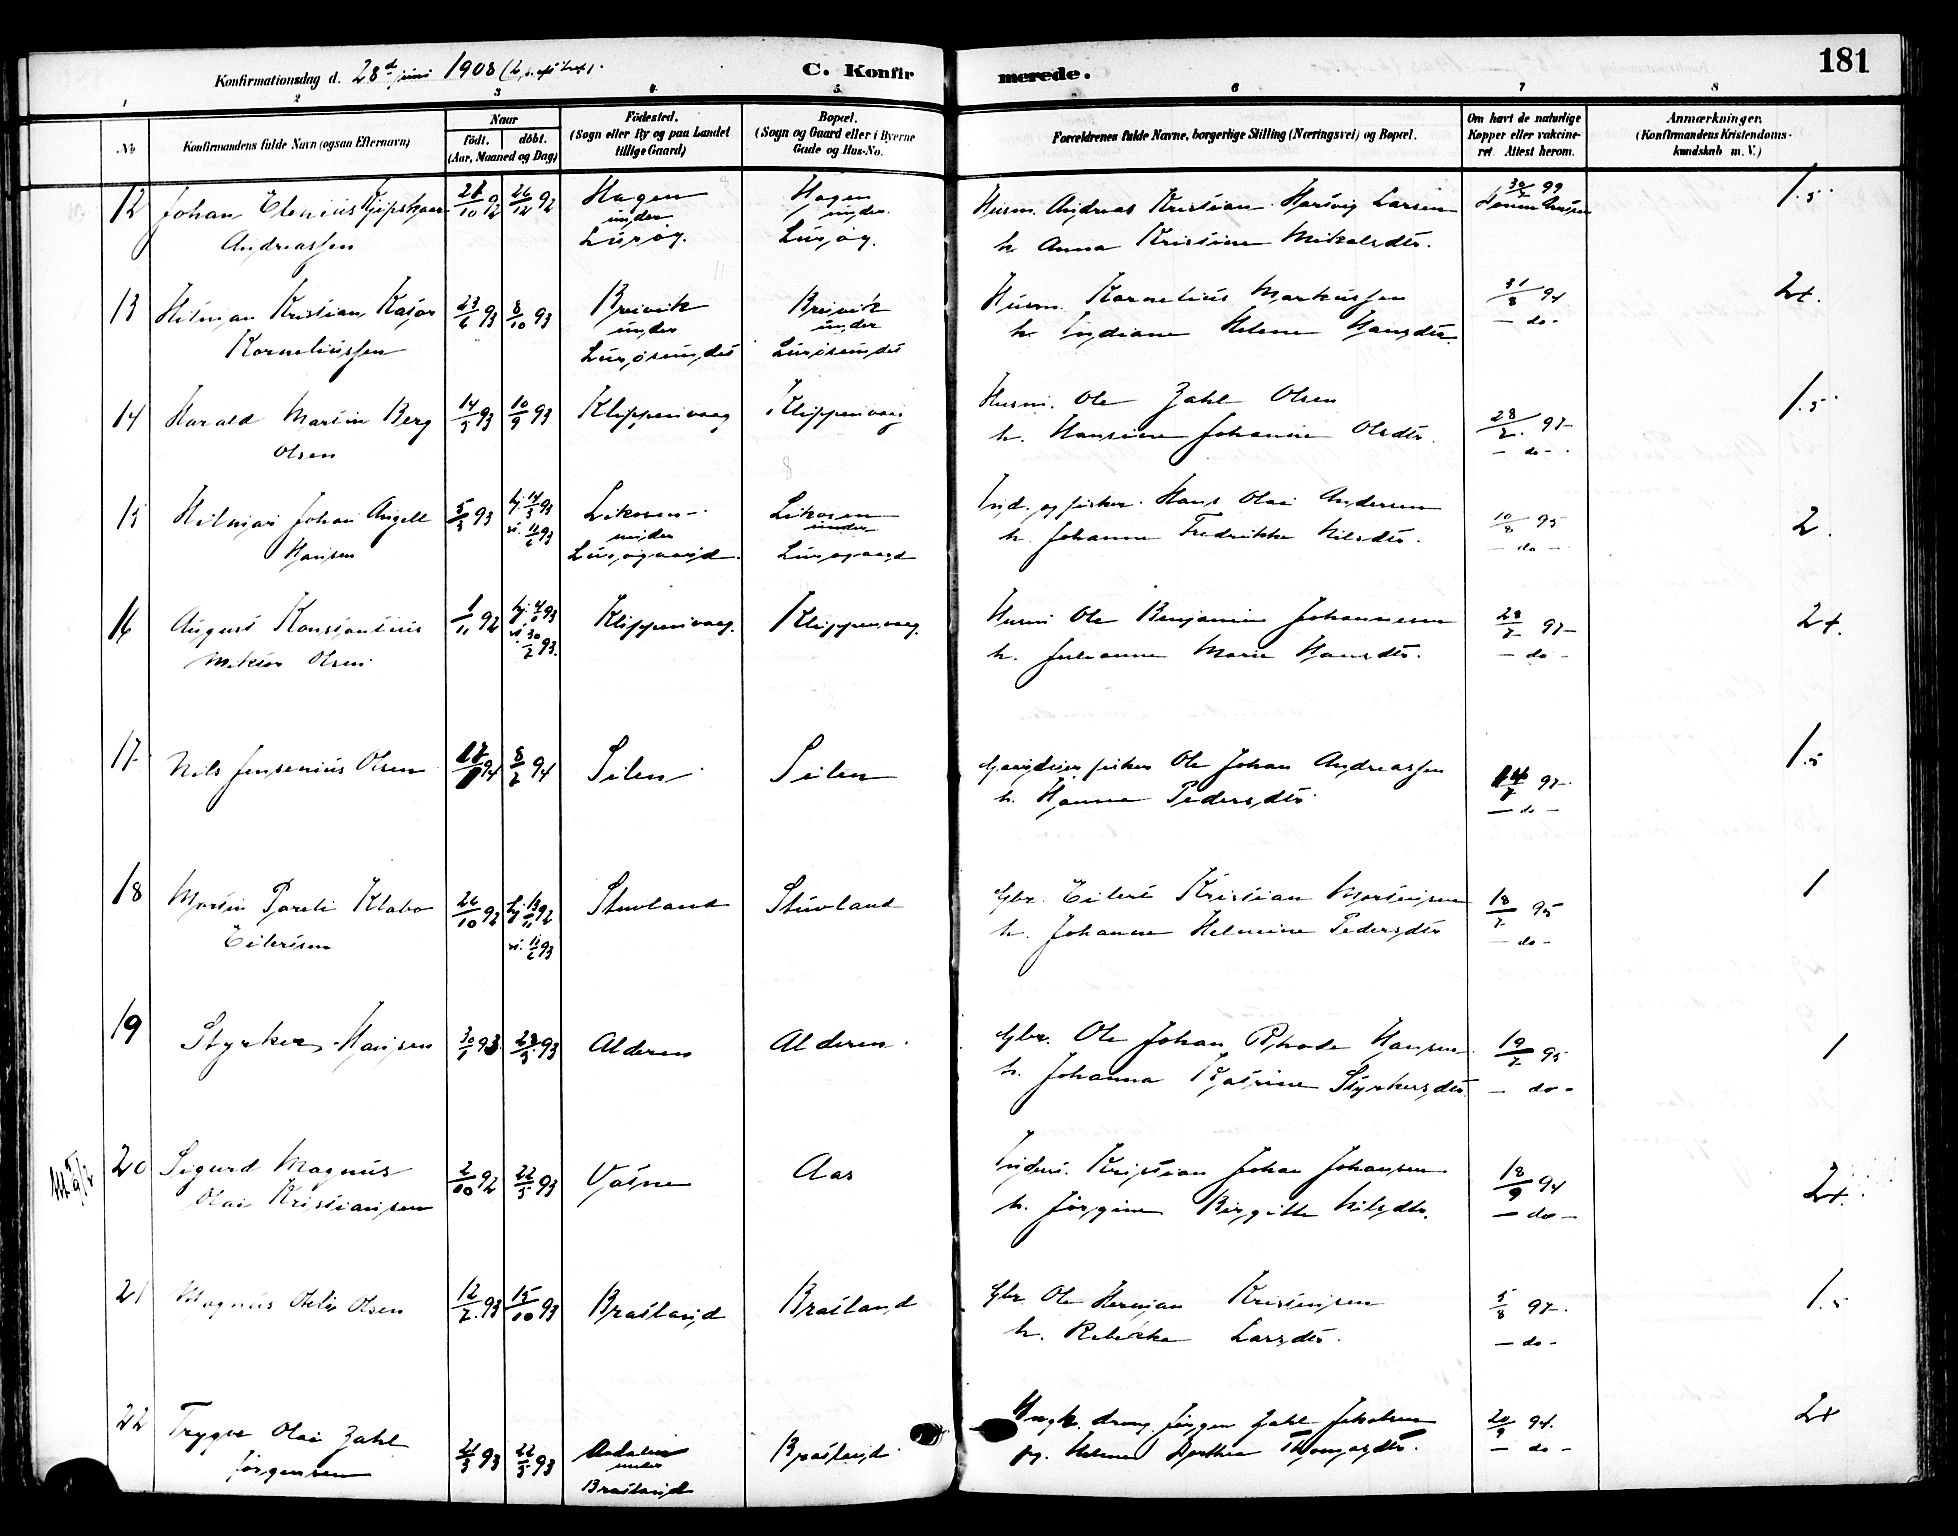 Konfirmationsdag d. 28de juni 1908
C. Konfirmerede.
181
1 2 3 4 5 6 7 8
No
Konfirmandens fulde Navn (ogsaa Efternavn)
Naar
födt. döbt.
(Aar, Maaned og Dag)
Födested.
(Sogn eller By og paa Landet
tillige Gaard)
Bopæl.
(Sogn og Gaard eller i Byerne
Gade og Hus-No.
Forældrenes fulde Navne, borgerlige Stilling (Næringsvei) og Bopæl.
Om havt de naturlige
Kopper eller vakcine-
ret. Attest herom.
Anmærkninger.
(Konfirmandens Kristendoms-
kundskab m. V.)
12 Johan Elenius
Andreassen
26/12 92
Hagen
under
Lurøg.
Hagen
under
Lurøg.
Husm. Andreas Kristian Hartvig Larsen
h. Anna Kristine Mikalsdtr.
1.5
13 Hilmar Kristian
Korneliussen
23/6 93 8/10 93
Breivik
under
Breivik
under
Husm. Kornelius Markussen
h. Indiane Helene Hansdtr.
31/8 94
- do -
2+.
14 Harald Martin Berg
Olsen
14/5 93 10/9 93
Klippenvaag
Klippenvaag
Husm. Ole Zahl Olsen
h. Hansine Johanne Olsdtr.
28/7. 97
- do -
1.5
15 Hilmar Johan Angell
Hansen
5/3 93 hj. 14/3 93
vi. 11/6 93
under
Lurøgaard.
under
Lurøgaard
Ind. og fisker. Hans Olai Andersen
h. Johanne Fredrikke Nilsdtr.
10/8 95
- do -
2.
16 August Konstantius
Olsen
1/11 92
Klippenvaag.
Klippenvaag.
Husm Ole Benjamin Johannesen
h. Julianne Marie Hansdtr.
28/7 97
- do -
2+.
17. Nils Jensenius Olsen
8/2 94
Selen
Selen
Ole Johan Andreassen
h. Hanne Pedersdtr
97
- do -
1.5
18 Martin Pareli Klabo
Eilertsen
26/10 92
vi. 11/6 93
Stuvland
Stuvland
Gbr. Eilert Kristian Mortensen
h. Johanne Helmine Pedersdtr
18/7 95
- do -
1
19 Styrker Hansen
28/5 93
Alderen
Alderen.
Gbr. Ole Johan Rhode Hansen
h. Johanna Katrine Styrkersdtr.
19/7 95
- do -
1
20 Sigurd Magnus
Olai Kristiansen
2/10 92 22/5 93
Aas
Inders. Kristian Johan Johansen
h. Jørgine Birgitte Nilsdtr.
18/9 94
- do -
2+.
21 Magnus Olsen
12/7. 93 15/10 93
Bratland
Bratland
Gbr. Ole Herman Kristensen
h. Rebekka Larsdtr.
5/8 97.
- do -
1.5
22 Trygve Olai Zahl
Jørgensen
22/5 93
under
Bratland
Bratland
Ungk. dreng Jørgen Zahl Jakobsen
pg. Helene Dorthea Thomasdtr.
20/9 94.
- do -
2+